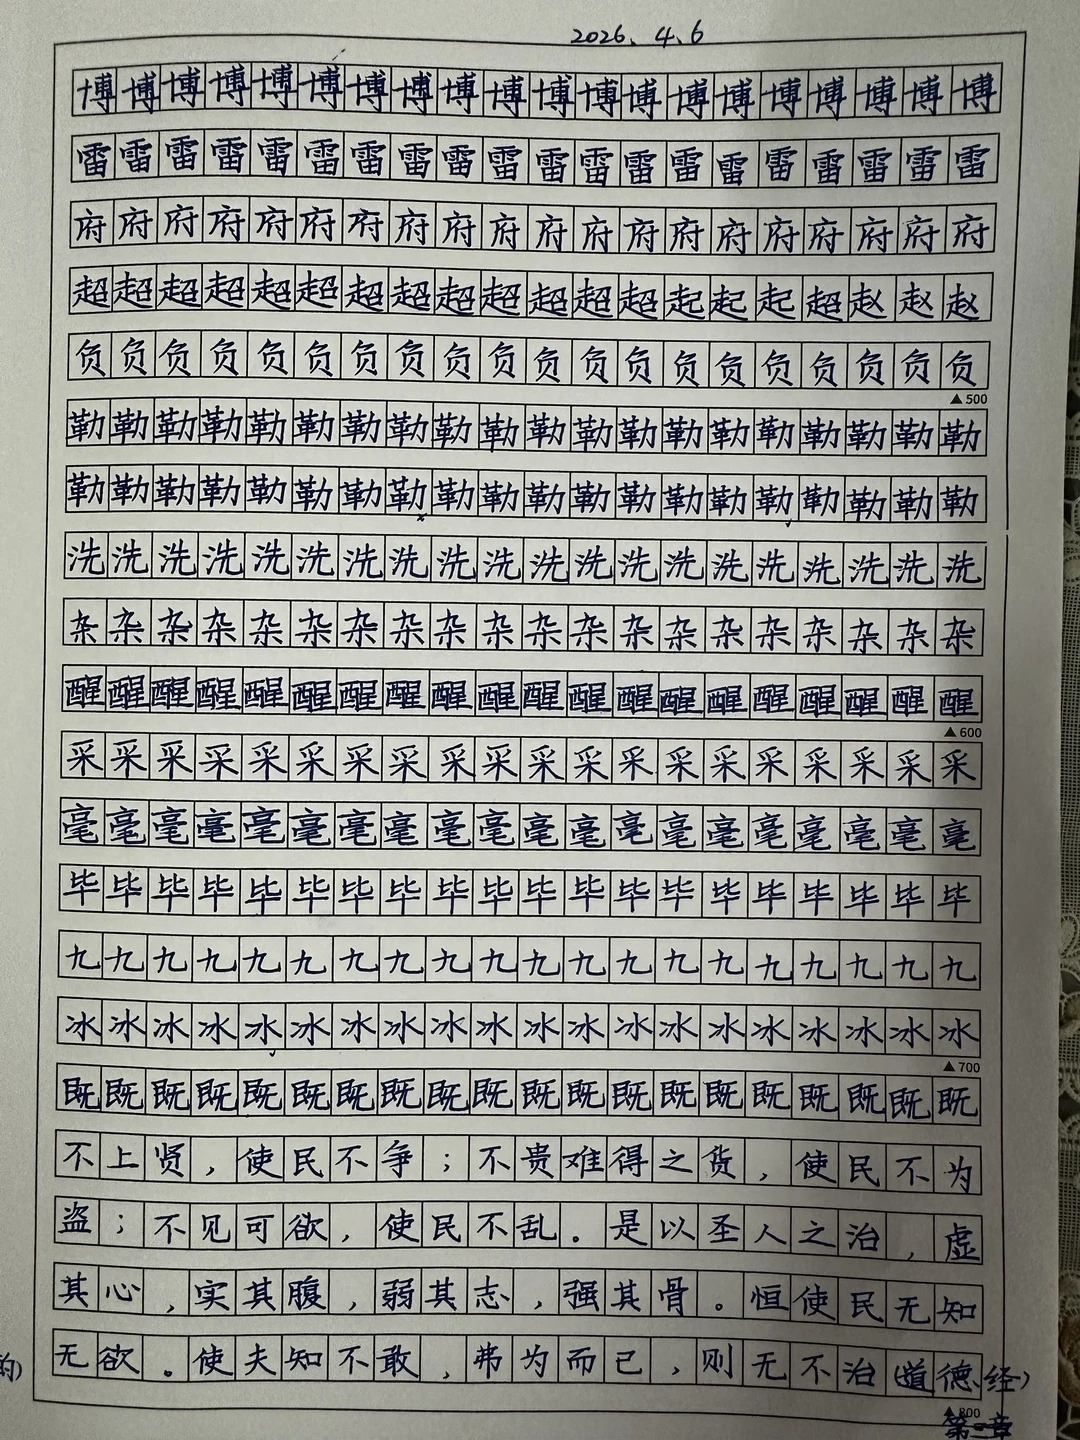 2026.4.6
博博博博博博博博博博博博博博博博博博博博
雷雷雷雷雷雷雷雷雷雷雷雷雷雷雷雷雷雷雷雷
府府府府府府府府府府府府府府府府府府府府
超超超超超超超超超超超超超起起起超赵赵赵
负负负负负负负负负负负负负负负负负负负负
▲500
勒勒勒勒勒勒勒勒勒勒勒勒勒勒勒勒勒勒勒勒
勒勒勒勒勒勒勒勒勒勒勒勒勒勒勒勒勒勒勒勒
洗洗洗洗洗洗洗洗洗洗洗洗洗洗洗洗洗洗洗洗
杂杂杂杂杂杂杂杂杂杂杂杂杂杂杂杂杂杂杂杂
醒醒醒醒醒醒醒醒醒醒醒醒醒醒醒醒醒醒醒醒
▲600
采采采采采采采采采采采采采采采采采采采采
毫毫毫毫毫毫毫毫毫毫毫毫毫毫毫毫毫毫毫毫
毕毕毕毕毕毕毕毕毕毕毕毕毕毕毕毕毕毕毕毕
九九九九九九九九九九九九九九九九九九九九
冰冰冰冰冰冰冰冰冰冰冰冰冰冰冰冰冰冰冰冰
▲700
既既既既既既既既既既既既既既既既既既既既
不上贤，使民不争；不贵难得之货，使民不为
盗；不见可欲，使民不乱。是以圣人之治，虚
其心，实其腹，弱其志，强其骨。恒使民无知
无欲。使夫知不敢，弗为而已，则无不治(道德经)
的)
▲800
第三章